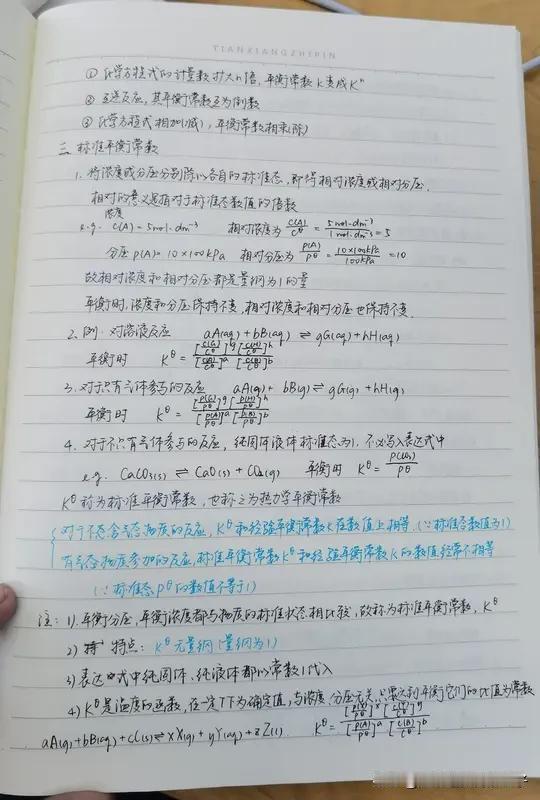 TIANXIANGZHIPIN
① 化学方程式的计量数扩大n倍，平衡常数K变成Kⁿ
② 互逆反应，其平衡常数互为倒数
③ 化学方程式相加(减)，平衡常数相乘(除)
三 标准平衡常数
1. 将浓度或分压分别除以各自的标准态，即得相对浓度或相对分压.
相对的意义是相对于标准态数值的倍数
浓度
e.g. c(A)=5mol·dm⁻³ 相对浓度为 c(A)/cθ = 5mol·dm⁻³/1mol·dm⁻³ = 5
分压 p(A)=10×100kPa 相对分压为 p(A)/pθ = 10×100kPa/100kPa = 10
故相对浓度和相对分压都是量纲为1的量
平衡时，浓度和分压保持不变，相对浓度和相对分压也保持不变.
2. 例. 对溶液反应 aA(aq)+bB(aq) ⇌ gG(aq)+hH(aq)
平衡时 Kθ = [c(G)/cθ]^g [c(H)/cθ]^h / [c(A)/cθ]^a [c(B)/cθ]^b
3. 对于只有气体参与的反应 aA(g)+ bB(g) ⇌ gG(g) + hH(g)
平衡时 Kθ = [p(G)/pθ]^g [p(H)/pθ]^h / [p(A)/pθ]^a [p(B)/pθ]^b
4. 对于不只有气体参与的反应，纯固体液体标准态为1. 不必写入表达式中
e.g. CaCO₃(s) ⇌ CaO(s) + CO₂(g) 平衡时 Kθ = p(CO₂)/pθ
Kθ称为标准平衡常数，也称之为热力学平衡常数
对于不含气态物质的反应，Kθ和经验平衡常数K在数值上相等. (∵标准态数值为1)
有气态物质参加的反应，标准平衡常数Kθ和经验平衡常数K的数值经常不相等
(∵标准态pθ的数值不等于1)
注：1) 平衡分压，平衡浓度都与物质的标准状态相比较，故称为标准平衡常数，Kθ
2) 特点：Kθ无量纲 (量纲为1)
3) 表达式中纯固体、纯液体都以常数1代入
4) Kθ是温度的函数，在一定T下为确定值，与浓度 分压无关，只要达到平衡它们的比值为常数
aA(g)+bB(aq)+cC(s) ⇌ xX(g)+yY(aq)+zZ(l) Kθ = [p(X)/pθ]^x [c(Y)/cθ]^y / [p(A)/pθ]^a [c(B)/cθ]^b